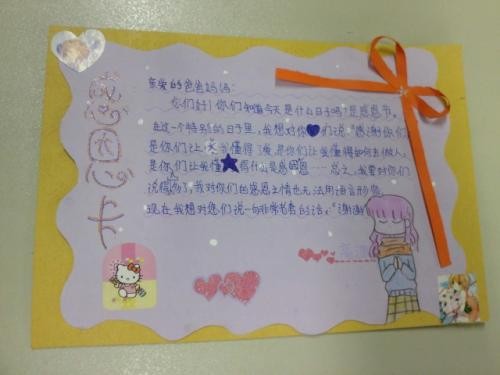 感恩卡
亲爱的爸爸妈妈:
您们好!你们知道今天是什么日子吗?是感恩节。
在这一个特别的日子里,我想对你们说:"感谢你们,
是你们让我懂得了爱,是你们让我懂得如何去做人,
是你们让我懂得什么是感恩……总之,我要对你们
说的 了,我对你们的感恩之情也无法用语言形容,
现在我想对您们说一句非常老者的话:"谢谢